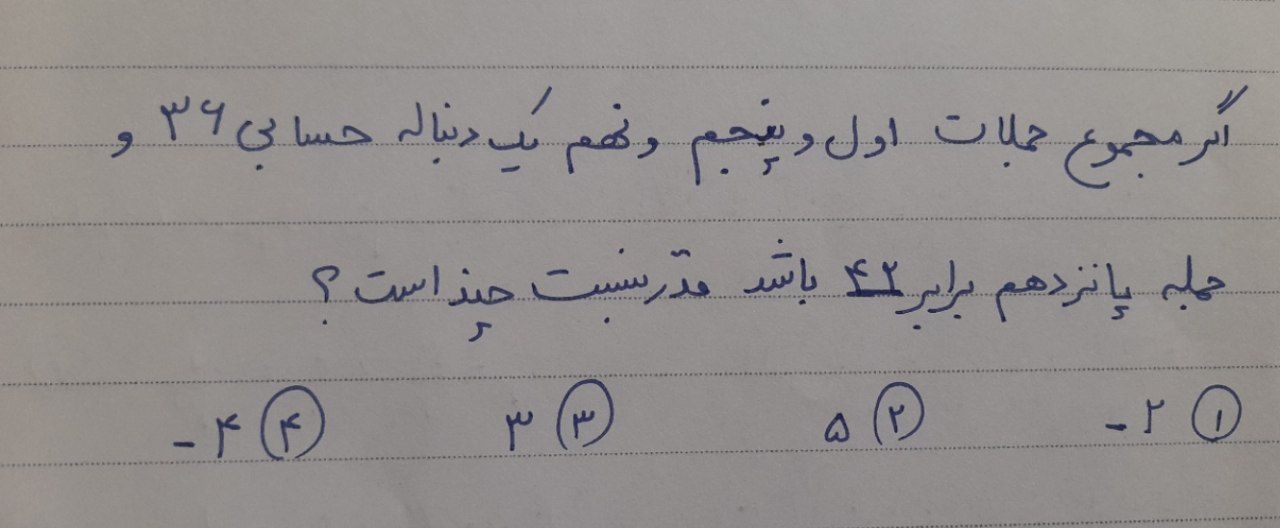 اگر مجموع جملات اول و پنجم و نهم یک دنباله حسابی ۳۶ و
جمله پانزدهم برابر ۴۲ باشد قدر نسبت چند است؟
۱ ۲- ۲ ۵ ۳ ۳ ۴ ۴-